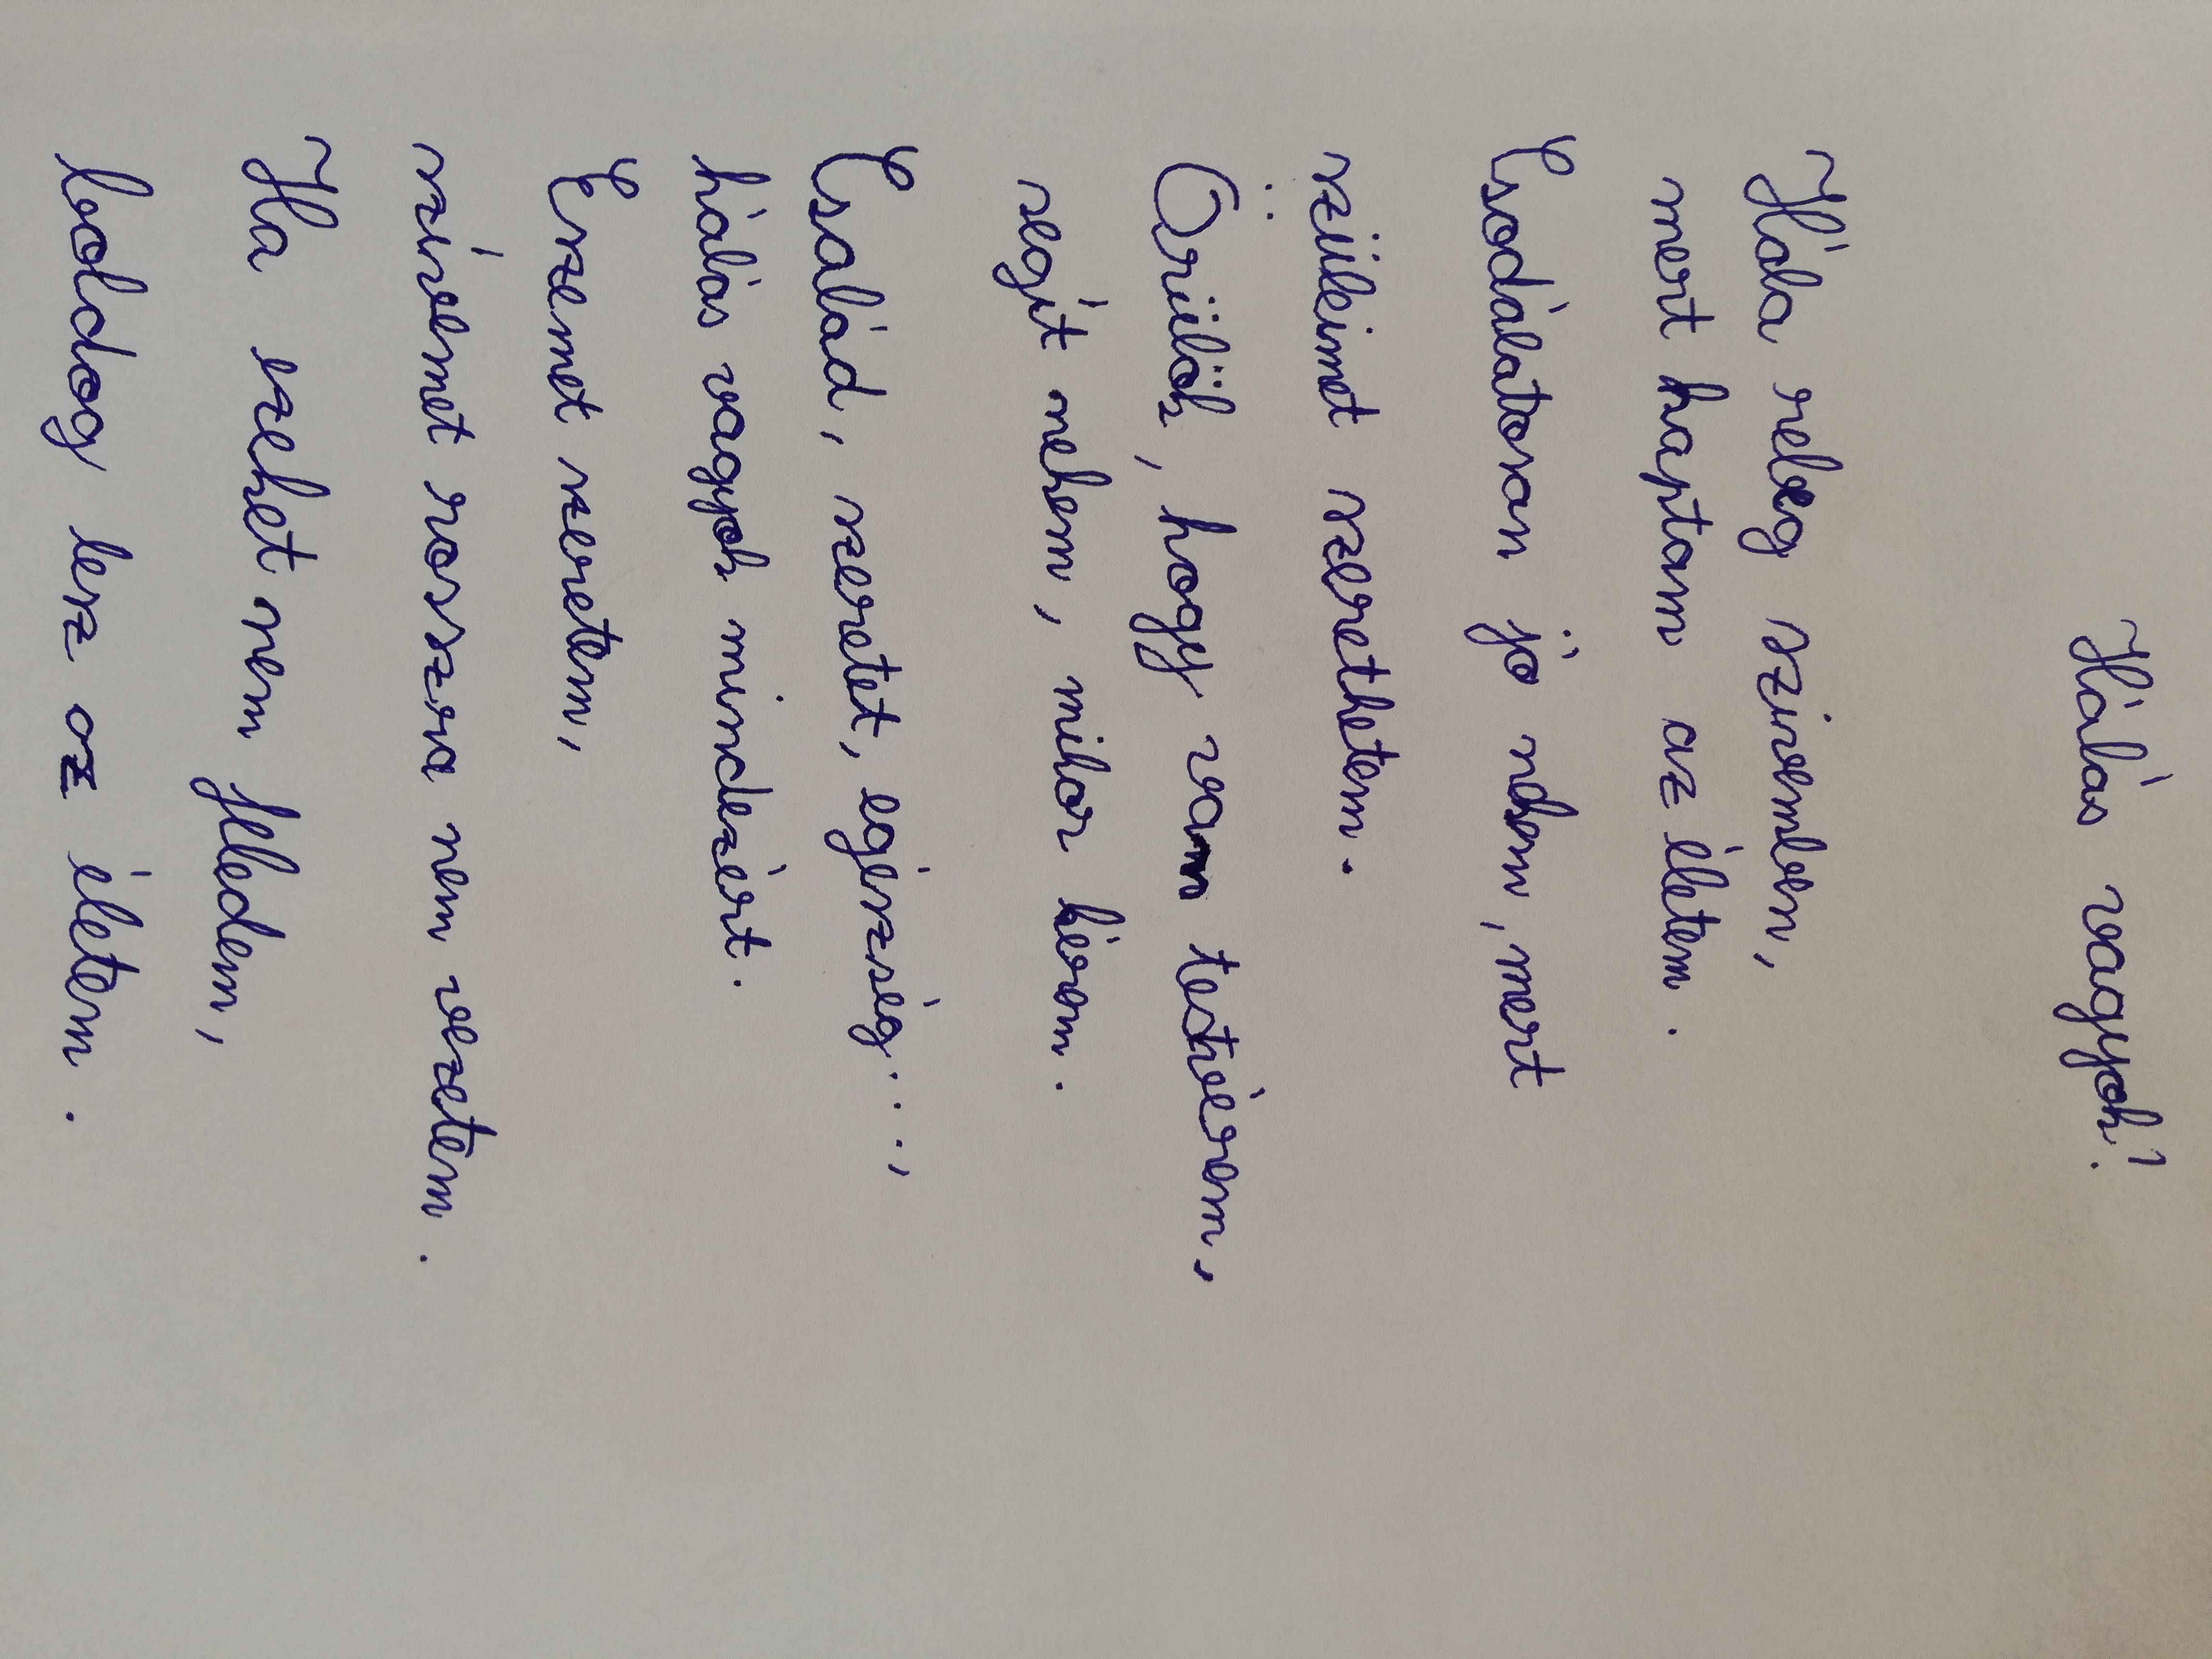 Hálás vagyok!
Hála rebeg szívemben,
mert kaptam az életem.
Csodálatosan jó nekem, mert
szüleimet szerethetem.
Örülök, hogy van testvérem,
segít nekem, mikor kérem.
Család, szeretet, egészség...,
hálás vagyok mindezért.
Eszemet szeretem,
szívemet rosszra nem vezetem.
Ha ezeket nem feledem,
boldog lesz az életem.